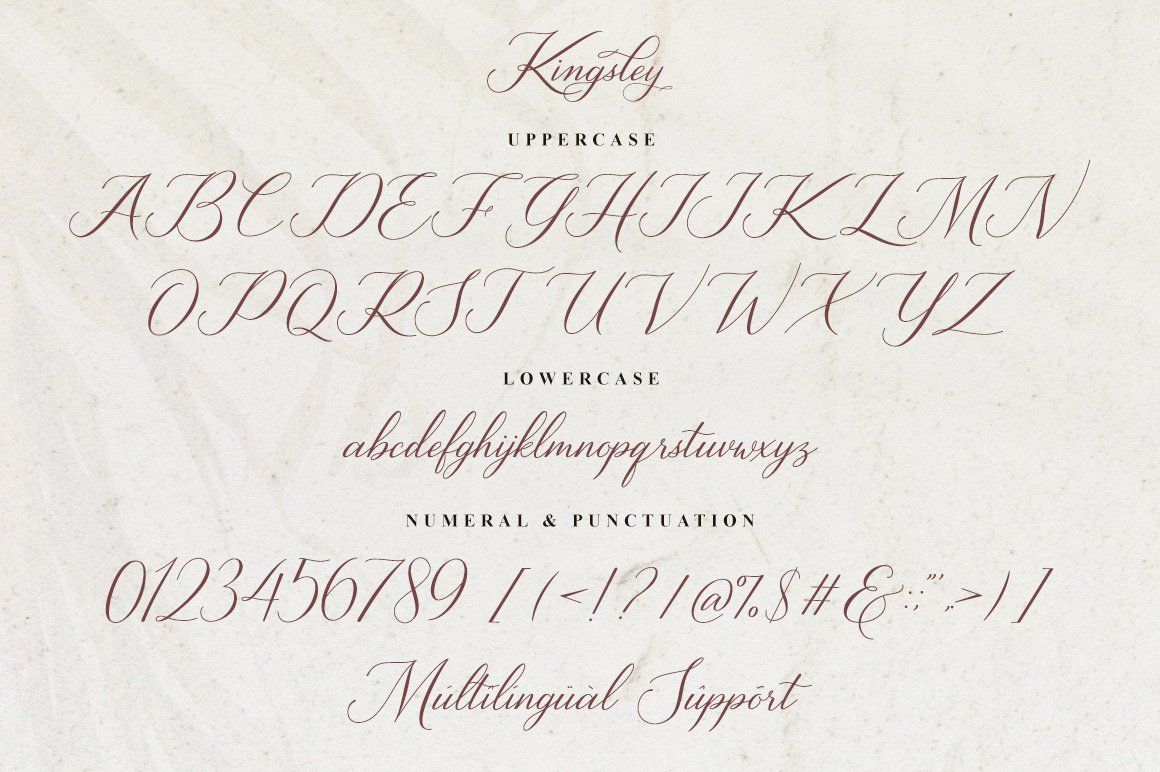 Kingsley
UPPERCASE
ABCDEFGHIJKLMN
OPQRSTUVWXYZ
LOWERCASE
abcdefghijklmnopqrstuvwxyz
NUMERAL & PUNCTUATION
0123456789 [ ( < ! ? / @ % $ # & : ; " ' , . > ) ]
Múltîlíngüàl Sûppõrt